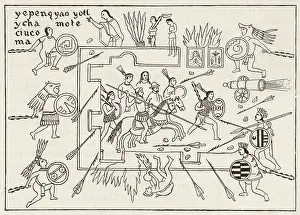 yepenqyao yotl
ycha mote
ciuco
ma